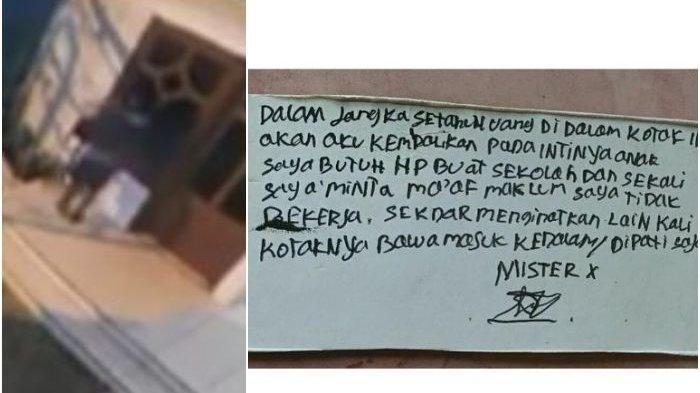 DALAM JANGKA SETAHUN UANG DI DALAM KOTAK I
AKAN AKU KEMBALIKAN PADA INTINYA ANAK
SAYA BUTUH HP BUAT SEKOLAH DAN SEKALI
SAYA MINTA MA'AF MAKLUM SAYA TIDAK
BEKERJA. SEKDAR MENGINATKAN LAIN KALI
KOTAKNYA BAWA MASUK KEDALAM/
MISTER X